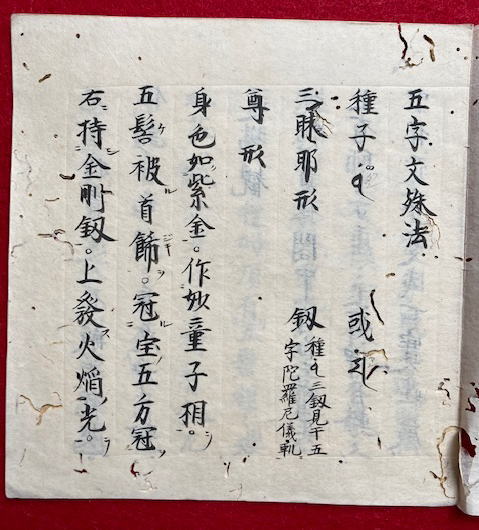 五字文殊法
種子 或
三昧耶形 釼 種 三釼見于五
字陀羅尼儀軌
尊形
身色如紫金。作妙童子相。
五髻被首餝。冠宝五方冠
右持金剛釼。上發火焔光。